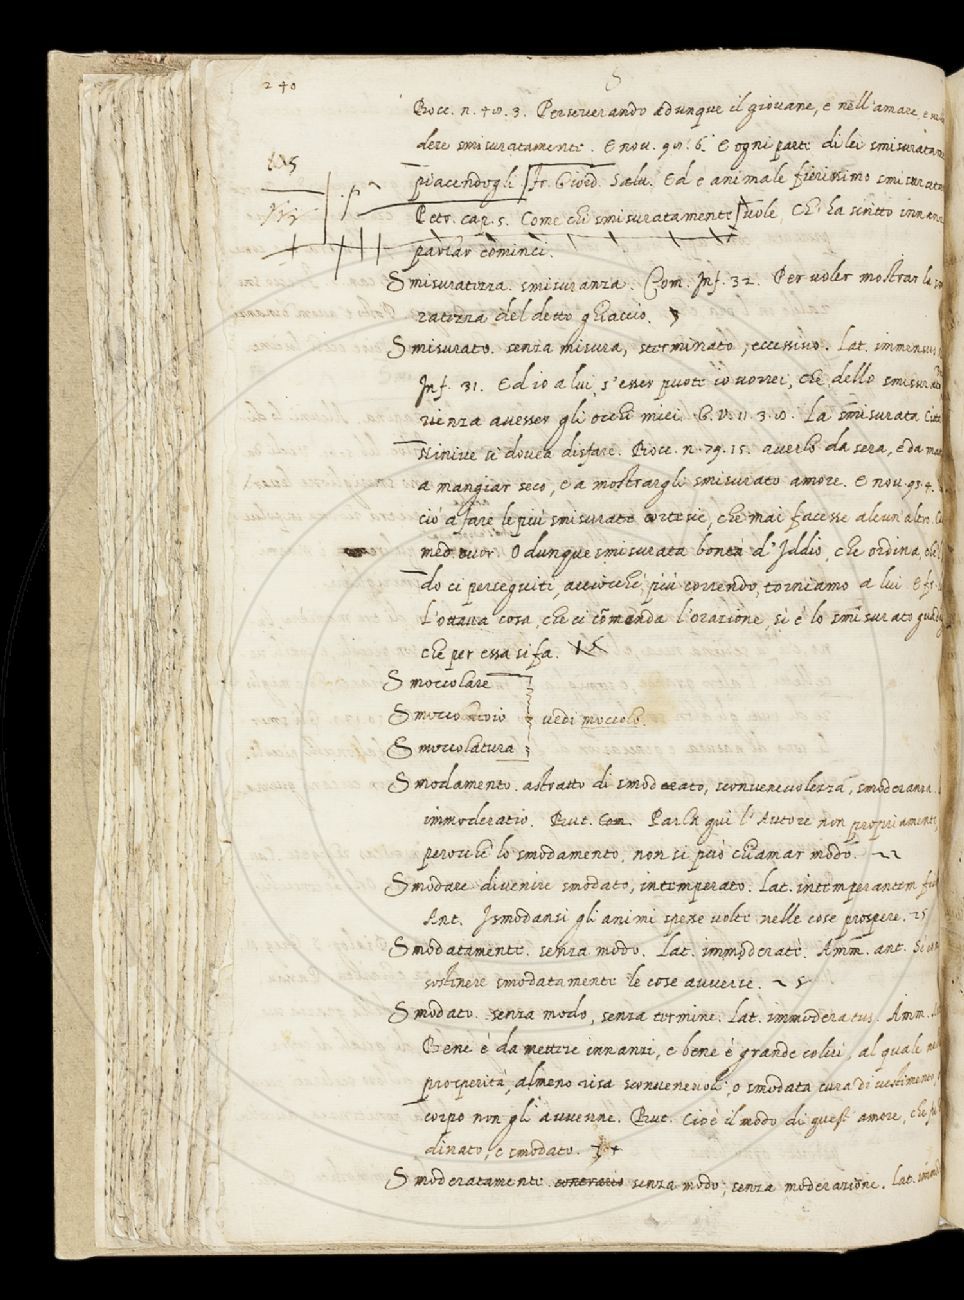 240 S
Bocc. n. 40. 3. Perseverando adunque il giovane, e nell'amare, e
dere smisuratamente. E nov. 98. 6. E ogni parte di lei smisuratam
105
piacendogli Fr. Giord. Salu. Ed è animale fierissimo smisurata
Petr. cap. 5. Come chi smisuratamente vole, Ch' ha scritto innanzi
parlar cominci.
Smisuratezza. smisuranza. Com. Inf. 32. Per voler mostrar la
ratezza del detto ghiaccio.
Smisurato. senza misura, sterminato, eccessivo. Lat. immensus
Inf. 31. Ed io a lui, s'esser puote io vorrei, che dello smisurato
rienza avesser gli occhi miei. G. V. 11. 3. 8. La smisurata città
Ninive si dovea disfare. Bocc. n. 79. 15. averlo da sera, e da
a mangiar seco, e a mostrargli smisurato amore. E nov. 93. 4.
ciò a fare le più smisurate cortesie, che mai facesse alcun altro.
med. cuor. O dunque smisurata bontà d'Iddio, che ordina, che
do ci perseguiti, acciocchè più correndo, torniamo a lui. E
L'ottava cosa, che ci comanda l'orazione, sì è lo smisurato
che per essa si fa.
Smoccolare
Smoccolatoio vedi moccolo.
Smoccolatura
Smodamento. astratto di smoderato, sconvenevolezza, smoderanza.
immoderatio. But. Com. Parla qui l'Autore non propriamente,
perocchè lo smodamento, non si può chiamar modo.
Smodare divenire smodato, intemperato. Lat. intemperantem
Ant. Ismodansi gli animi spesse volte nelle cose prospere. 25
Smodatamente. senza modo. Lat. immoderatè. Amm. ant.
sostinere smodatamente le cose avverse.
Smodato. senza modo, senza termine. Lat. immoderatus. Amm.
Bene è da mettere innanzi, e bene è grande colui, al quale
prosperità, almeno risa sconvenevoli, o smodata cura di vestimento,
corpo non gli avvenne. But. Cioè il modo di quest' amore, che
dinato, e smodato.
Smoderatamente. contrario senza modo, senza moderazione. Lat.